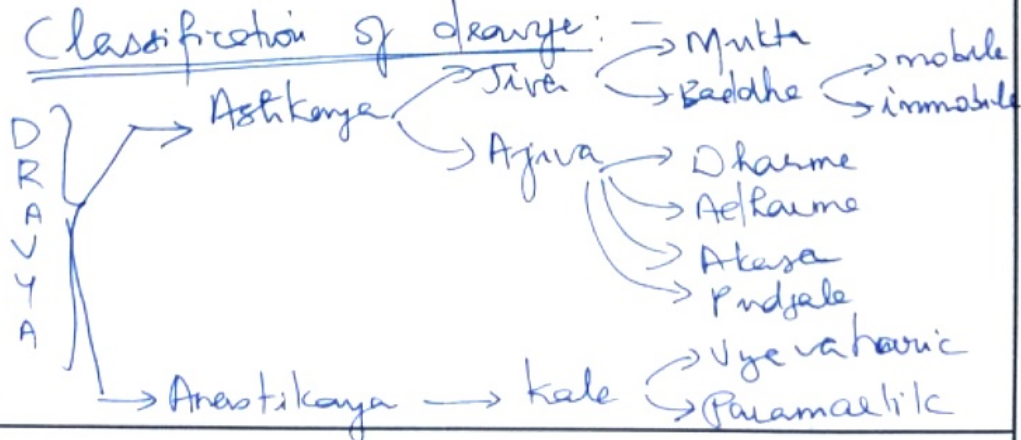 Classification of dravya: -
DRAVYA
Astikaya
Jiva
Mukta
Baddha
mobile
immobile
Ajiva
Dharma
Adharma
Akasa
Pudgala
Anastikaya
Kala
Vyavaharic
Paramartik